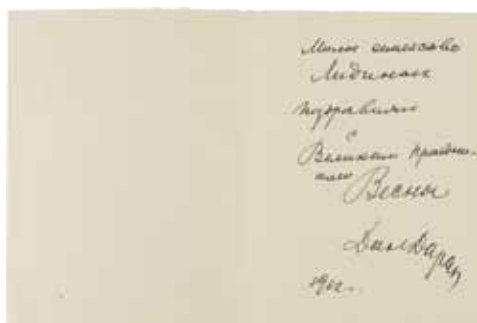 Милое семейство
Лидиных
поздравляем
с
Великим праздни-
ком
Весны
Дан Даран